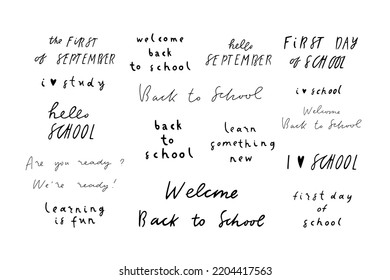 the FIRST
of SEPTEMBER
i ♥ study
hello
SCHOOL
Are you ready?
We're ready!
learning
is fun
welcome
back
to school
Back to School
back
to
school
hello
SEPTEMBER
learn
something
new
Welcme
Back to School
FIRST DAY
of SCHOOL
i ♥ school
Welcome
Back to School
I ♥ SCHOOL
first day
of
school
shutterstock.com · 2204417563